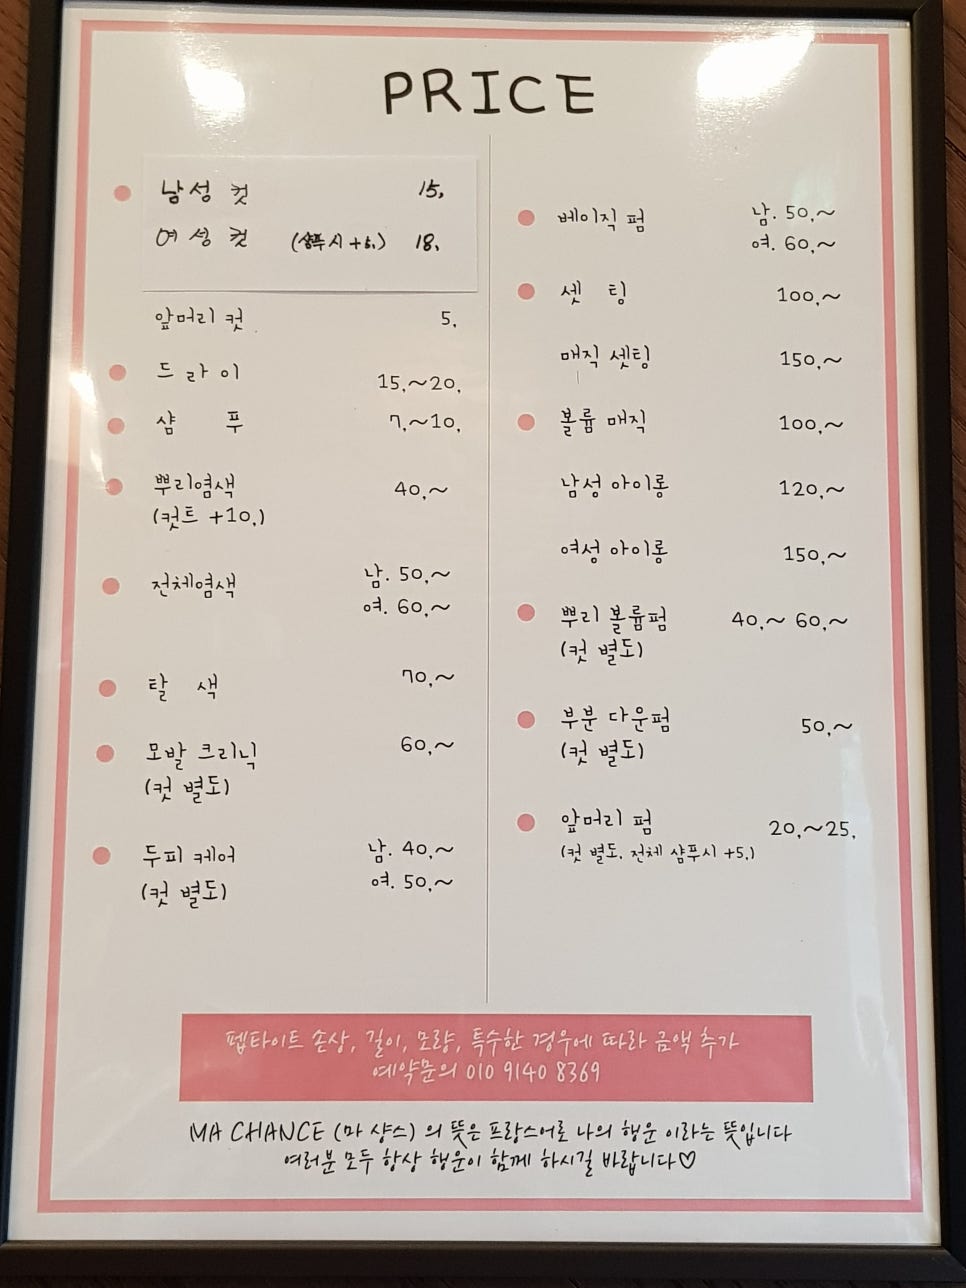 PRICE
남성 컷 15,
여성 컷 (샴푸시 +5,) 18,
앞머리 컷 5,
드라이 15,~20,
샴 푸 7,~10,
뿌리염색 40,~
(컷트 +10,)
전체염색 남. 50,~
여. 60,~
탈 색 70,~
모발 크리닉 60,~
(컷 별도)
두피 케어 남. 40,~
(컷 별도) 여. 50,~
베이직 펌 남. 50,~
여. 60,~
셋 팅 100,~
매직 셋팅 150,~
볼륨 매직 100,~
남성 아이롱 120,~
여성 아이롱 150,~
뿌리 볼륨펌 40,~ 60,~
(컷 별도)
부분 다운펌 50,~
(컷 별도)
앞머리 펌 20,~25,
(컷 별도, 전체 샴푸시 +5,)
펩타이트 손상, 길이, 모량, 특수한 경우에 따라 금액 추가
예약문의 010 9140 8369
MA CHANCE (마 샹스) 의 뜻은 프랑스어로 나의 행운 이라는 뜻입니다
여러분 모두 항상 행운이 함께 하시길 바랍니다♡